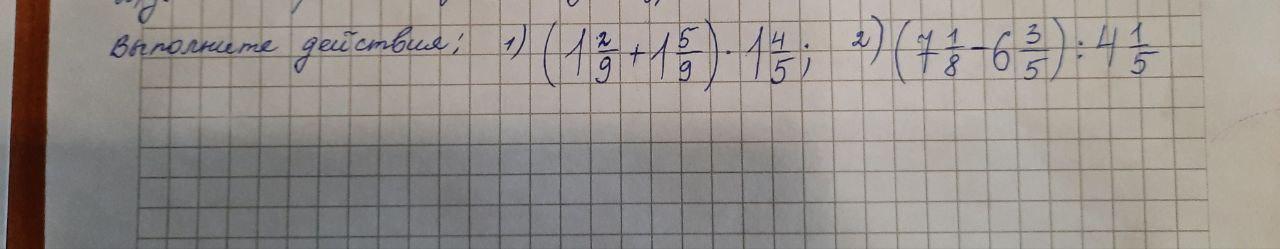 Выполните действия; 1) (1 2/9 + 1 5/9) · 1 4/5; 2) (7 1/8 - 6 3/5) : 4 1/5